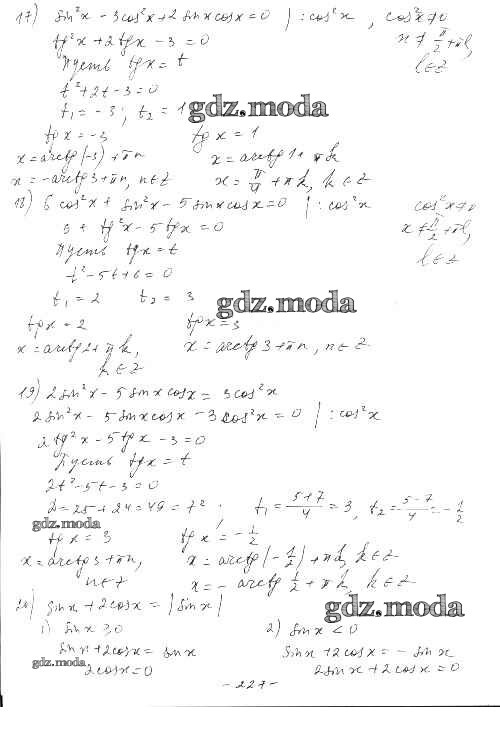 17) sin²x - 3cos²x + 2 sinx cosx = 0 | : cos²x , cos²x ≠ 0
tg²x + 2tgx - 3 = 0 x ≠ π/2 + πl,
Пусть tgx = t l ∈ Z
t² + 2t - 3 = 0
t₁ = -3; t₂ = 1 gdz.moda
tgx = -3 tgx = 1
x = arctg(-3) + πn x = arctg1 + πk
x = -arctg3 + πn, n ∈ Z x = π/4 + πk, k ∈ Z
18) 6 cos²x + sin²x - 5 sinx cosx = 0 | : cos²x cos²x ≠ 0
+ tg²x - 5tgx = 0 x ≠ π/2 + πl,
Пусть tgx = t l ∈ Z
t² - 5t + 6 = 0
t₁ = 2 t₂ = 3 gdz.moda
tgx = 2 tgx = 3
x = arctg2 + πk, x = arctg3 + πn, n ∈ Z
k ∈ Z
19) 2sin²x - 5 sinx cosx = 3cos²x
2sin²x - 5sinx cosx - 3cos²x = 0 | : cos²x
2tg²x - 5tgx - 3 = 0
Пусть tgx = t
2t² - 5t - 3 = 0
D = 25 + 24 = 49 = 7² t₁ = (5+7)/4 = 3, t₂ = (5-7)/4 = -1/2
gdz.moda
tgx = 3 tgx = -1/2
x = arctg3 + πn, x = arctg(-1/2) + πk, k ∈ Z
n ∈ Z x = -arctg 1/2 + πk, k ∈ Z
20) sinx + 2cosx = |sinx| gdz.moda
1) sinx ≥ 0 2) sinx < 0
sinx + 2cosx = sinx sinx + 2cosx = - sinx
gdz.moda 2cosx = 0 2sinx + 2cosx = 0
- 227 -